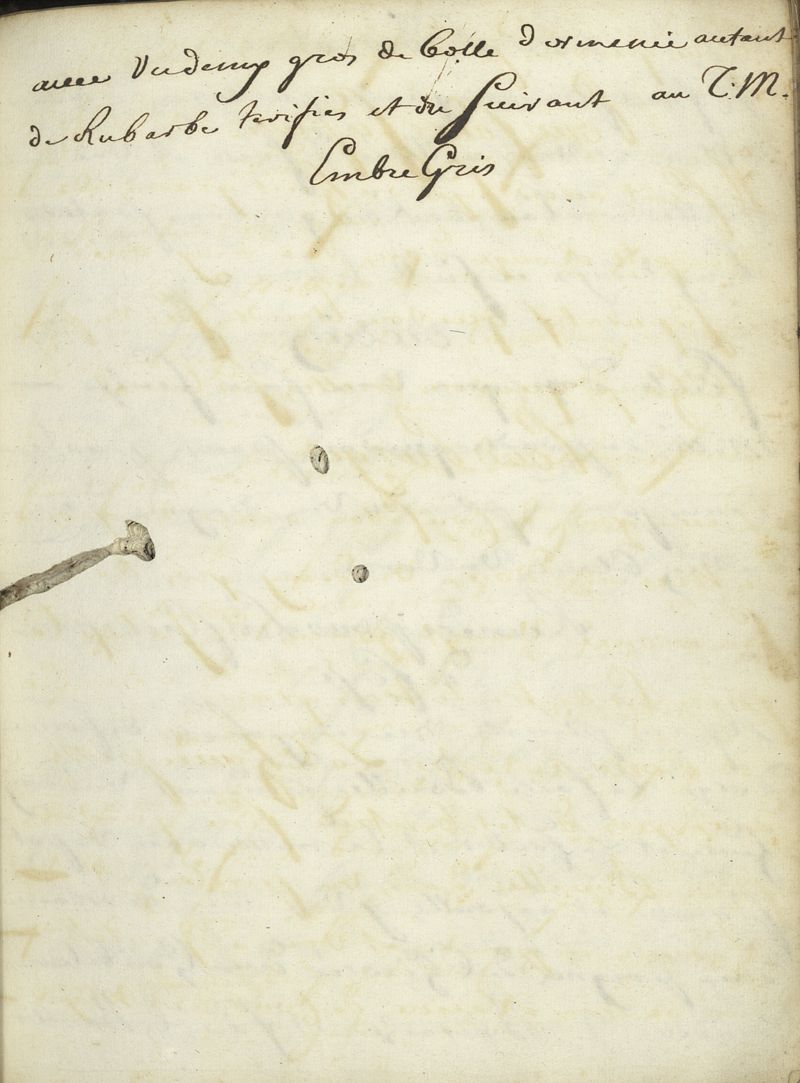 avec Un demy gros de bolle d'ormenie autant
de Rubarbe terifiés et du Suivant au T. M.
Embre Gris